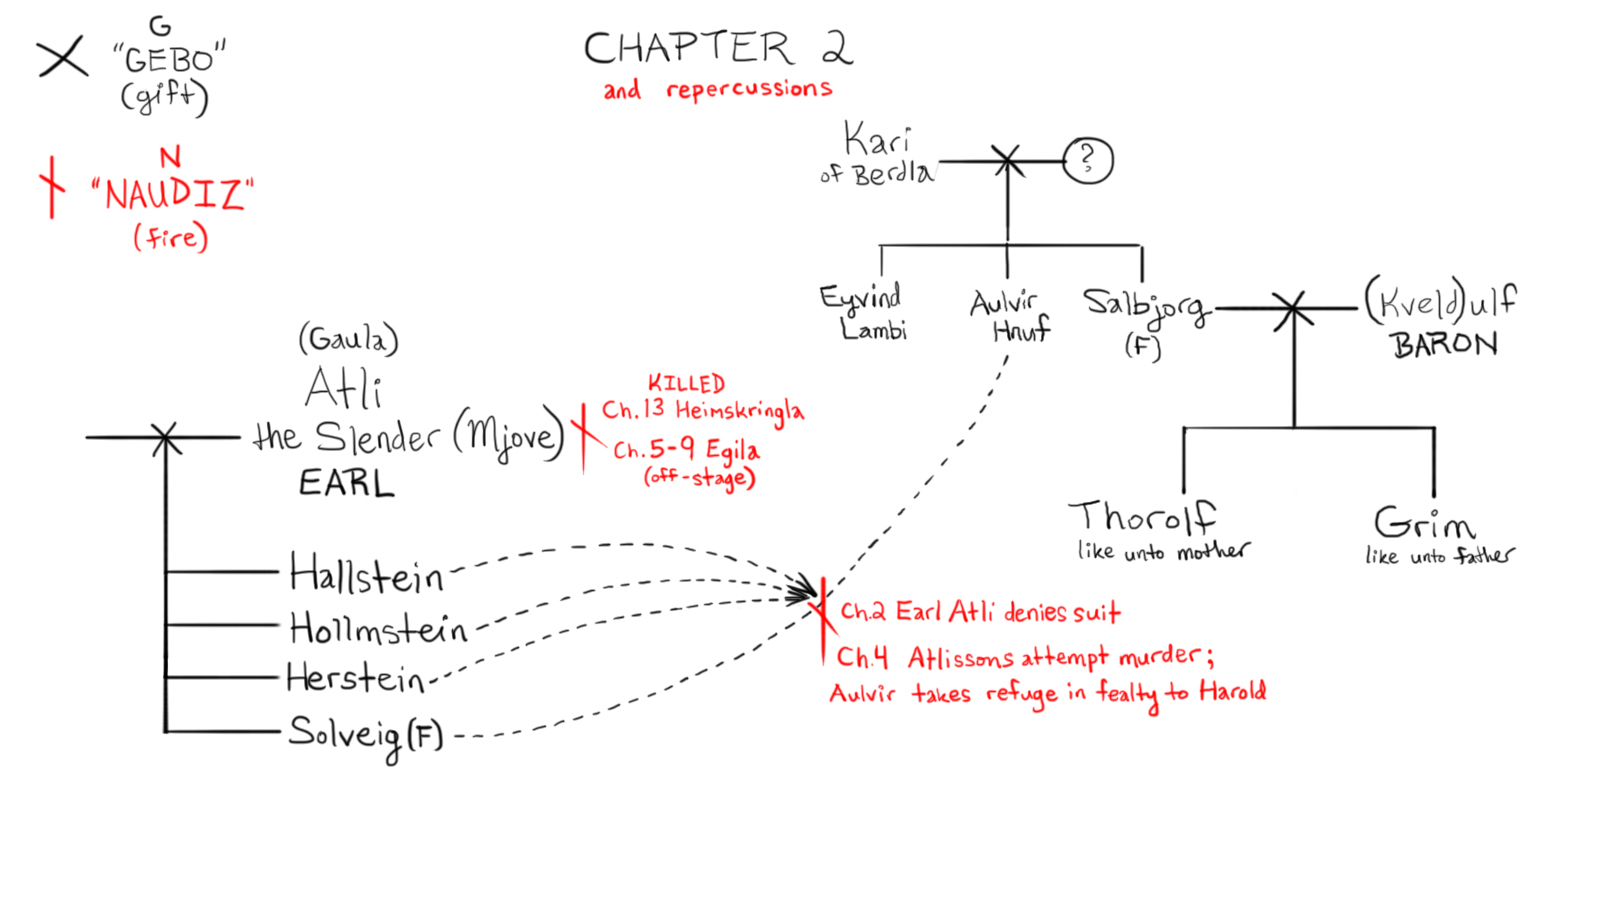 G
"GEBO"
(gift)
N
"NAUDIZ"
(fire)
CHAPTER 2
and repercussions
Kari
of Berdla
?
Eyvind
Lambi
Aulvir
Hnuf
Salbjorg
(F)
(Kveld)ulf
BARON
Thorolf
like unto mother
Grim
like unto father
(Gaula)
Atli
the Slender (Mjove)
EARL
KILLED
Ch.13 Heimskringla
Ch.5-9 Egila
(off-stage)
Hallstein
Hollmstein
Herstein
Solveig (F)
Ch.2 Earl Atli denies suit
Ch.4 Atlissons attempt murder;
Aulvir takes refuge in fealty to Harold